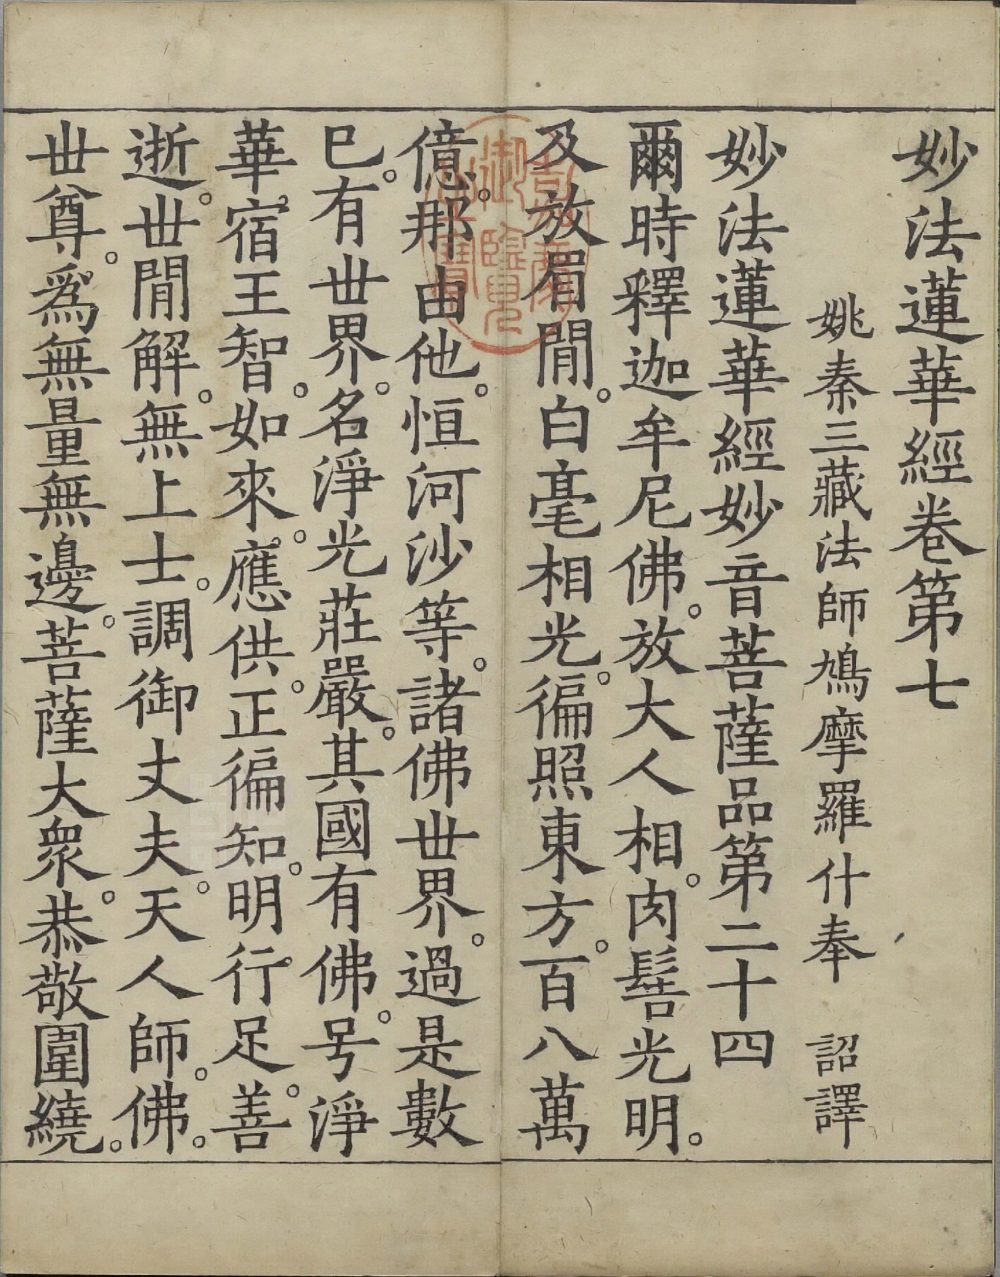 妙法蓮華經卷第七
姚秦三藏法師鳩摩羅什奉 詔譯
妙法蓮華經妙音菩薩品第二十四
爾時釋迦牟尼佛。放大人相。肉髻光明。
及放眉閒。白毫相光。徧照東方。百八萬
億。那由他。恒河沙等。諸佛世界。過是數
已。有世界。名淨光莊嚴。其國有佛。号淨
華。宿王智。如來。應供。正徧知。明行。足。善
逝。世閒解。無上士。調御丈夫。天人師。佛。
世尊。爲無量無邊。菩薩大衆。恭敬圍繞。